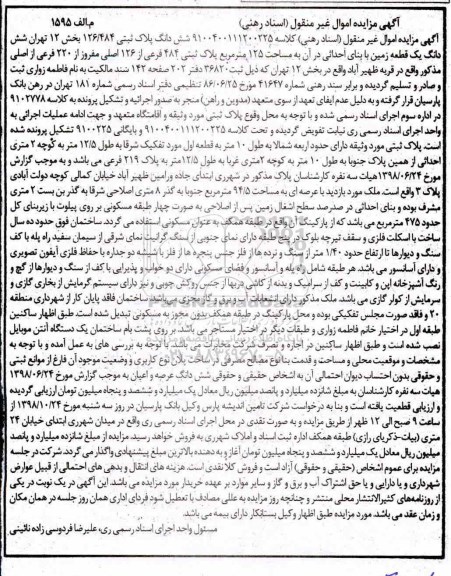 آگهی مزایده اموال غیر منقول (اسناد رهنی) م.الف ۱۵۹۵
آگهی مزایده اموال غیر منقول (اسناد رهنی) کلاسه ۹۱۰۰۴۰۰۱۱۱۲۰۰۲۲۵ شش دانگ پلاک ثبتی ۱۲۶/۴۸۴ بخش ۱۲ تهران شش
دانگ یک قطعه زمین با بنای احداثی در آن به مساحت ۱۲۵ مترمربع پلاک ثبتی ۴۸۴ فرعی از ۱۲۶ اصلی مفروز از ۲۲۰ فرعی از اصلی
مذکور واقع در قریه ظهیر آباد واقع در بخش ۱۲ تهران که ذیل ثبت ۳۶۸۲۰ دفتر ۲۰۲ صفحه ۱۴۲ سند مالکیت به نام فاطمه زواری ثبت
و صادر و تسلیم گردیده و برابر سند رهنی شماره ۴۱۶۴۷ مورخ ۸۶/۰۶/۲۵ تنظیمی دفتر اسناد رسمی شماره ۱۸۱ تهران در رهن بانک
پارسیان قرار گرفته و به دلیل عدم ایفای تعهد از سوی متعهد (مدیون و راهن) منجر به صدور اجرائیه و تشکیل پرونده به کلاسه ۹۱۰۲۷۷۸
در اداره سوم اجرای اسناد رسمی شده و با توجه به محل وقوع پلاک ثبتی مورد وثیقه و اقامتگاه متعهد و جهت ادامه عملیات اجرائی به
واحد اجرای اسناد رسمی ری نیابت تفویض گردیده و تحت کلاسه ۹۱۰۰۴۰۰۱۱۱۲۰۰۲۲۵ و بایگانی ۹۱۰۰۲۲۵ تشکیل پرونده شده
است. پلاک ثبتی مورد وثیقه دارای حدود اربعه شمالا به طول ۱۰ متر به قطعه اول مورد تفکیک شرقا به طول ۱۲/۵ متر به کوچه ۲ متری
احداثی از همین پلاک جنوبا به طول ۱۰ متر به کوچه ۲متری غربا به طول ۱۲/۵متر به پلاک ۲۱۹ فرعی می باشد و به موجب گزارش
مورخ ۱۳۹۸/۰۶/۲۴ هیات سه نفره کارشناسان پلاک مذکور در شهرری ابتدای جاده ورامین ظهیر آباد خیابان کمالی کوچه دولت آبادی
پلاک ۲ واقع است. ملک مورد بازدید با عرصه ای به مساحت ۹۴/۵ مترمربع جنوبا به گذر ۸ متری اصلاحی شرقا به گذر بن بست ۲ متری
مشرف بوده و بنای احداثی در صدرصد سطح اشغال زمین پس از اصلاحی به صورت چهار طبقه مسکونی بر روی پیلوت با زیربنای کل
حدود ۴۷۵ مترمربع می باشد که از پارکینگ آن واقع در طبقه همکف به عنوان مسکونی استفاده می گردد. ساختمان فوق حدود ده سال
ساخت با اسکلت فلزی و سقف تیرچه بلوک در پنج طبقه دارای نمای جنوبی از سنگ گرانیت نمای شرقی از سیمان سفید راه پله با کف
سنگ و دیوارها تا ارتفاع حدود ۱/۴۰ متر از سنگ و نرده ها از فلز جنس پنجره ها از فلز با شیشه دو جداره با حفاظ فلزی آیفون تصویری
و دارای آسانسور می باشد. هر طبقه شامل راه پله و آسانسور و فضای مسکونی دارای دو خواب و پذیرایی با کف از سنگ و دیوارها از گچ و
رنگ آشپزخانه اپن و کابینت و کف از سرامیک و بدنه از کاشی دربها از جنس روکش چوبی و نیز دارای سیستم گرمایش از بخاری گازی و
سرمایش از کولر گازی می باشد. ملک مذکور دارای انشعابات آب و برق و گاز مجزی می باشد. ساختمان فاقد پایان کار از شهرداری منطقه
۲۰ و فاقد صورت مجلس تفکیکی بوده و محل پارکینگ در طبقه همکف بدون مجوز به مسکونی تبدیل شده است. طبق اظهار ساکنین
طبقه اول در اختیار خانم فاطمه زواری و طبقات دیگر در اختیار مستاجر می باشد. بر روی پشت بام ساختمان یک دستگاه آنتن موبایل
نصب شده است و طبق اظهار ساکنین در اجاره و تصرف شرکت مخابرات می باشد. با توجه به بررسی های به عمل آمده و با توجه به
مشخصات و موقعیت محلی و مساحت و قدمت بنا نوع مصالح مصرفی در ساخت پلان نوع کاربری و وضعیت موجود آن فارغ از موانع ثبتی
و حقوقی بدون احتساب دیوان احتمالی آن به اشخاص حقیقی و حقوقی شش دانگ عرصه و اعیان به موجب گزارش مورخ ۱۳۹۸/۰۶/۲۴
هیات سه نفره کارشناسان به مبلغ شانزده میلیارد و پانصد میلیون ریال معادل یک میلیارد و ششصد و پنجاه میلیون تومان ارزیابی گردیده
و ارزیابی قطعیت یافته است و بنا به درخواست شرکت تامین اندیشه پارس وکیل بانک پارسیان در روز سه شنبه مورخ ۱۳۹۸/۱۰/۲۴ از
ساعت ۹ صبح الی ۱۲ ظهر از طریق مزایده و به صورت نقدی در محل اجرای اسناد رسمی ری واقع در میدان شهرری ابتدای خیابان ۲۴
متری (بیات-ذکریای رازی) طبقه همکف اداره ثبت اسناد و املاک شهرری به فروش خواهد رسید. مزایده از مبلغ شانزده میلیارد و پانصد
میلیون ریال معادل یک میلیارد و ششصد و پنجاه میلیون تومان آغاز و به دهنده بالاترین مبلغ پیشنهادی واگذار می گردد. شرکت در جلسه
مزایده برای عموم اشخاص (حقیقی و حقوقی) آزاد است و فروش کلا نقدی است. هزینه های انتقال و بدهی های احتمالی از قبیل عوارض
شهرداری و یا دارایی و یا حق اشتراک آب و برق و گاز و سایر موارد بر عهده خریدار مورد مزایده می باشد. این آگهی در یک نوبت در یکی
از روزنامه‌های کثیرالانتشار محلی منتشر و چنانچه روز مزایده به عللی مصادف با تعطیل شود فردای اداری همان روز جلسه در همان مکان
و زمان عقد می باشد. مورد مزایده طبق اظهار وکیل بستانکار دارای بیمه می باشد.
مسئول واحد اجرای اسناد رسمی ری، علیرضا فردوسی زاده نائینی